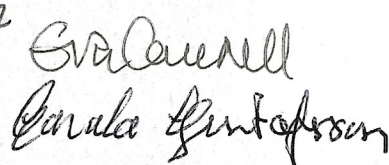 Eva Connell
Carola Gustafsson